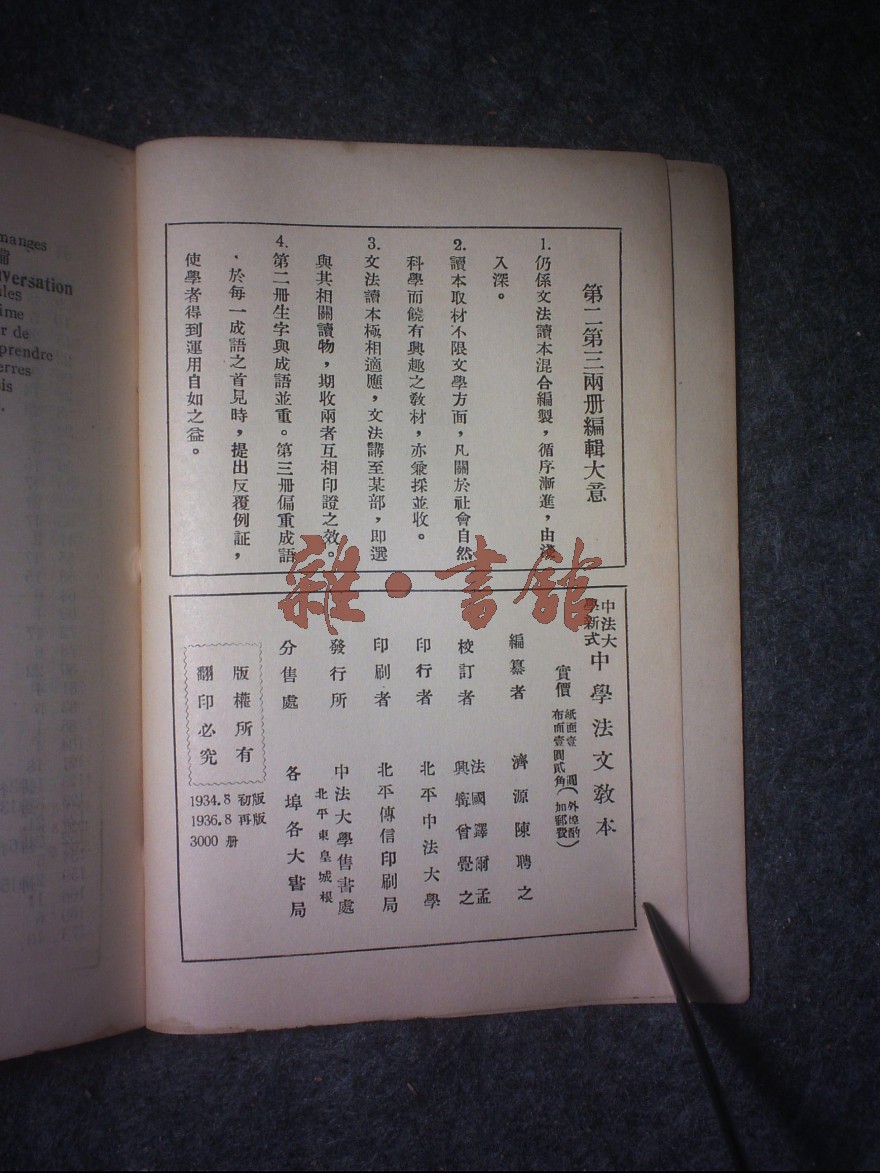 manges
Conversation
ales
ime
r de
prendre
erres
is
第二第三兩册編輯大意
1. 仍係文法讀本混合編製，循序漸進，由淺
入深。
2. 讀本取材不限文學方面，凡關於社會自然
科學而饒有興趣之教材，亦兼採並收。
3. 文法讀本極相適應，文法講至某部，即選
與其相關讀物，期收兩者互相印證之效。
4. 第二册生字與成語並重。第三册偏重成語
，於每一成語之首見時，提出反覆例証，
使學者得到運用自如之益。
雜·書館
中法大
學新式
中學法文教本
實價
紙面壹圓
布面壹圓貳角
（外埠酌
加郵費）
編纂者 濟源陳聘之
校訂者 法國鐸爾孟
興甯曾覺之
印行者 北平中法大學
印刷者 北平傳信印刷局
發行所 中法大學售書處
北平東皇城根
分售處 各埠各大書局
版權所有
翻印必究
1934. 8 初版
1936. 8 再版
3000 册